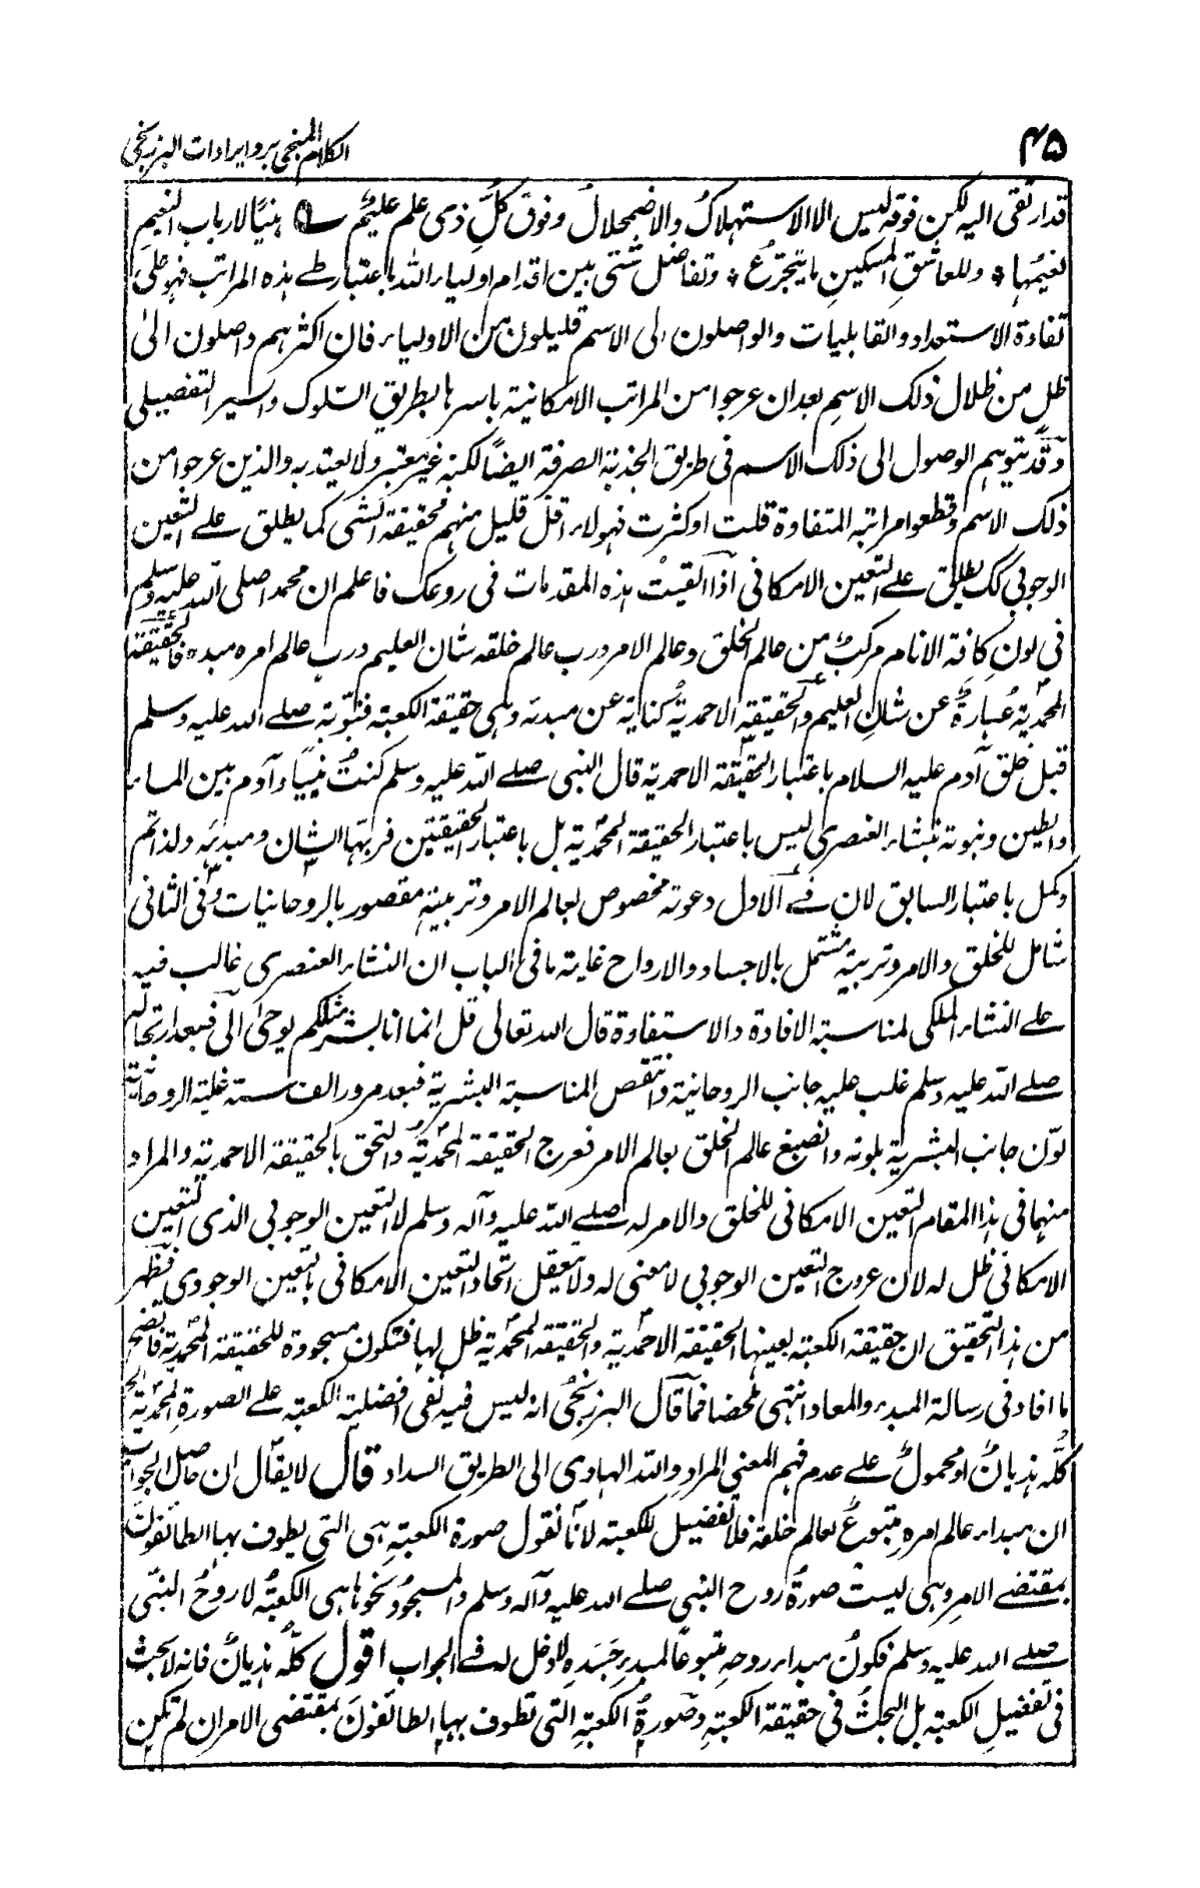 ٤٥
الكلام المنجي برد ايرادات البرزنجي
قد ارتقى اليه لكن فوقه ليس الا الاستهلاكُ والاضمحلالُ وفوق كلِّ ذى علم عليمٌ ھنيئًا لارباب النعيمِ
نعيمُها * وللعاشقِ المسكينِ ما يتجرَّعُ * وتفاضل شتى بين اقدام اولياء الله باعتبار طے هذه المراتب فهو على
تفاوة الاستعداد والقابليات والواصلون الى الاسم قليلون من الاولياء فان اكثرهم واصلون الىٰ
ظلٍ من ظلال ذلك الاسم بعد ان عرجوا من المراتب الامكانية باسرها بطريق السّلوك والسير التفصيلى
وقد يتوهم الوصول الى ذلك الاسم فى طريق الجذبة الصرفة ايضًا لكنه غير معتبر ولا يعتد به والذين عرجوا من
ذلك الاسم وقطعوا مراتبه المتفاوة قلت او كثرت فهولاء اقلّ قليل منهم فحقيقة الشى كما يطلق علے التعين
الوجوبي كك يطلق علے التعين الامكانى اذا القيت هذه المقدمات فى روعك فاعلم ان محمد اصلى الله عليه وسلم
فى لون كافة الانام مركبٌ من عالم الخلق وعالم الامر ورب عالم خلقه شان العليم ورب عالم امره مبدءه فالحقيقة
المحمدية عبارةٌ عن شان العليم والحقيقة الاحمدية كنايةٌ عن مبدئه وهى حقيقة الكعبة فنبوّته صلے الله عليه وسلم
قبل خلق آدم عليه السلام باعتبار الحقيقة الاحمدية قال النبى صلے الله عليه وسلم كنتُ نبيًا وآدم بين الماء
والطين ونبوته بنشاء العنصرى ليس باعتبار الحقيقة المحمدية بل باعتبار الحقيقتين فربها الشان ومبدئه ولذا تم
وكمل باعتبار السابق لان فے الاول دعوته مخصوص بعالم الامر وتربيته مقصور بالروحانيات وفى الثانى
شامل للخلق والامر وتربيته مشتمل بالاجساد والارواح غاية ما فى الباب ان النشاء العنصرى غالب فيه
علے النشاء الملكى لمناسبة الافادة والاستفادة قال الله تعالى قل انما انا بشر مثلكم يوحى الىّ فبعد ارتحاله
صلے الله عليه وسلم غلب عليه جانب الروحانية وانتقص المناسبة البشرية فبعد مرور الف سنة غلبة الروحانية
لوّن جانب البشرية بلونه وانصبغ عالم الخلق بعالم الامر فعرج الحقيقة المحمدية والتحق بالحقيقة الاحمدية والمراد
منهما فى هذا المقام التعين الامكانى للخلق والامر له صلے الله عليه وآله وسلم لا التعين الوجوبي الذى التعين
الامكانى ظل له لان عروج التعين الوجوبي لا معنى له ولا يتعقل اتحاد التعين الامكانى بالتعين الوجودى فظهر
من هذا التحقيق ان حقيقة الكعبة بعينها الحقيقة الاحمدية والحقيقة المحمدية ظل لها فتكون مسجودة للحقيقة المحمدية فاتضح
ما افاد فى رسالة المبدء والمعاد انتهى ملخصا فما قال البرزنجى انه ليس فيه نفى افضلية الكعبة على الصورة المحمدية الخ
كلُّه هذيانٌ او محمولٌ علے عدم فهم المعنى المراد والله الهادى الى الطريق السداد قال لا يقال ان حاصل الجواب
ان مبداء عالم امره متبوعٌ لعالم خلقه فلا تفضيل للكعبة لانا نقول صورة الكعبةِ هى التى يطوف بها الطائفون
بمقتضے الامر وهى ليست صورة روح النبى صلے الله عليه وآله وسلم والمسجودُ نحوها هى الكعبةُ لا روحُ النبى
صلے الله عليه وسلم فكونُ مبداء روحهِ متبوعًا لمبدءِ جَسَدهِ لا دخل له فے الجواب اقول كلّه هذيانٌ فانه لا بحث
فى تفضيلِ الكعبة بل البحثُ فى حقيقة الكعبةِ وصورةُ الكعبةِ التى تطوف بها الطائفونَ بمقتضى الامر ان لم تكن